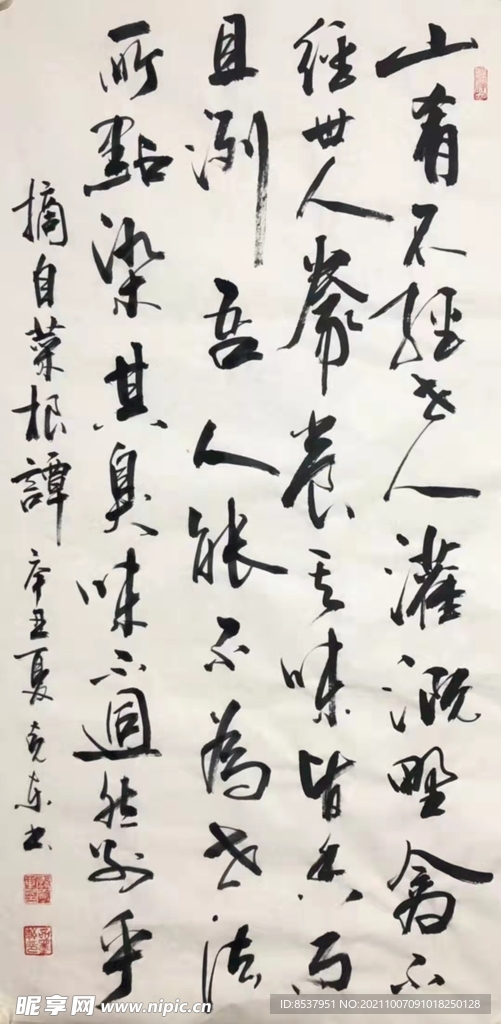 山肴不經世人灌溉野禽不
經世人豢养其味皆香而
且洌吾人能不為世法
所點染其臭味不迥然别乎
摘自菜根譚 辛丑夏 克东书
昵享网 www.nipic.cn
ID:8537951 NO:20211007091018250128